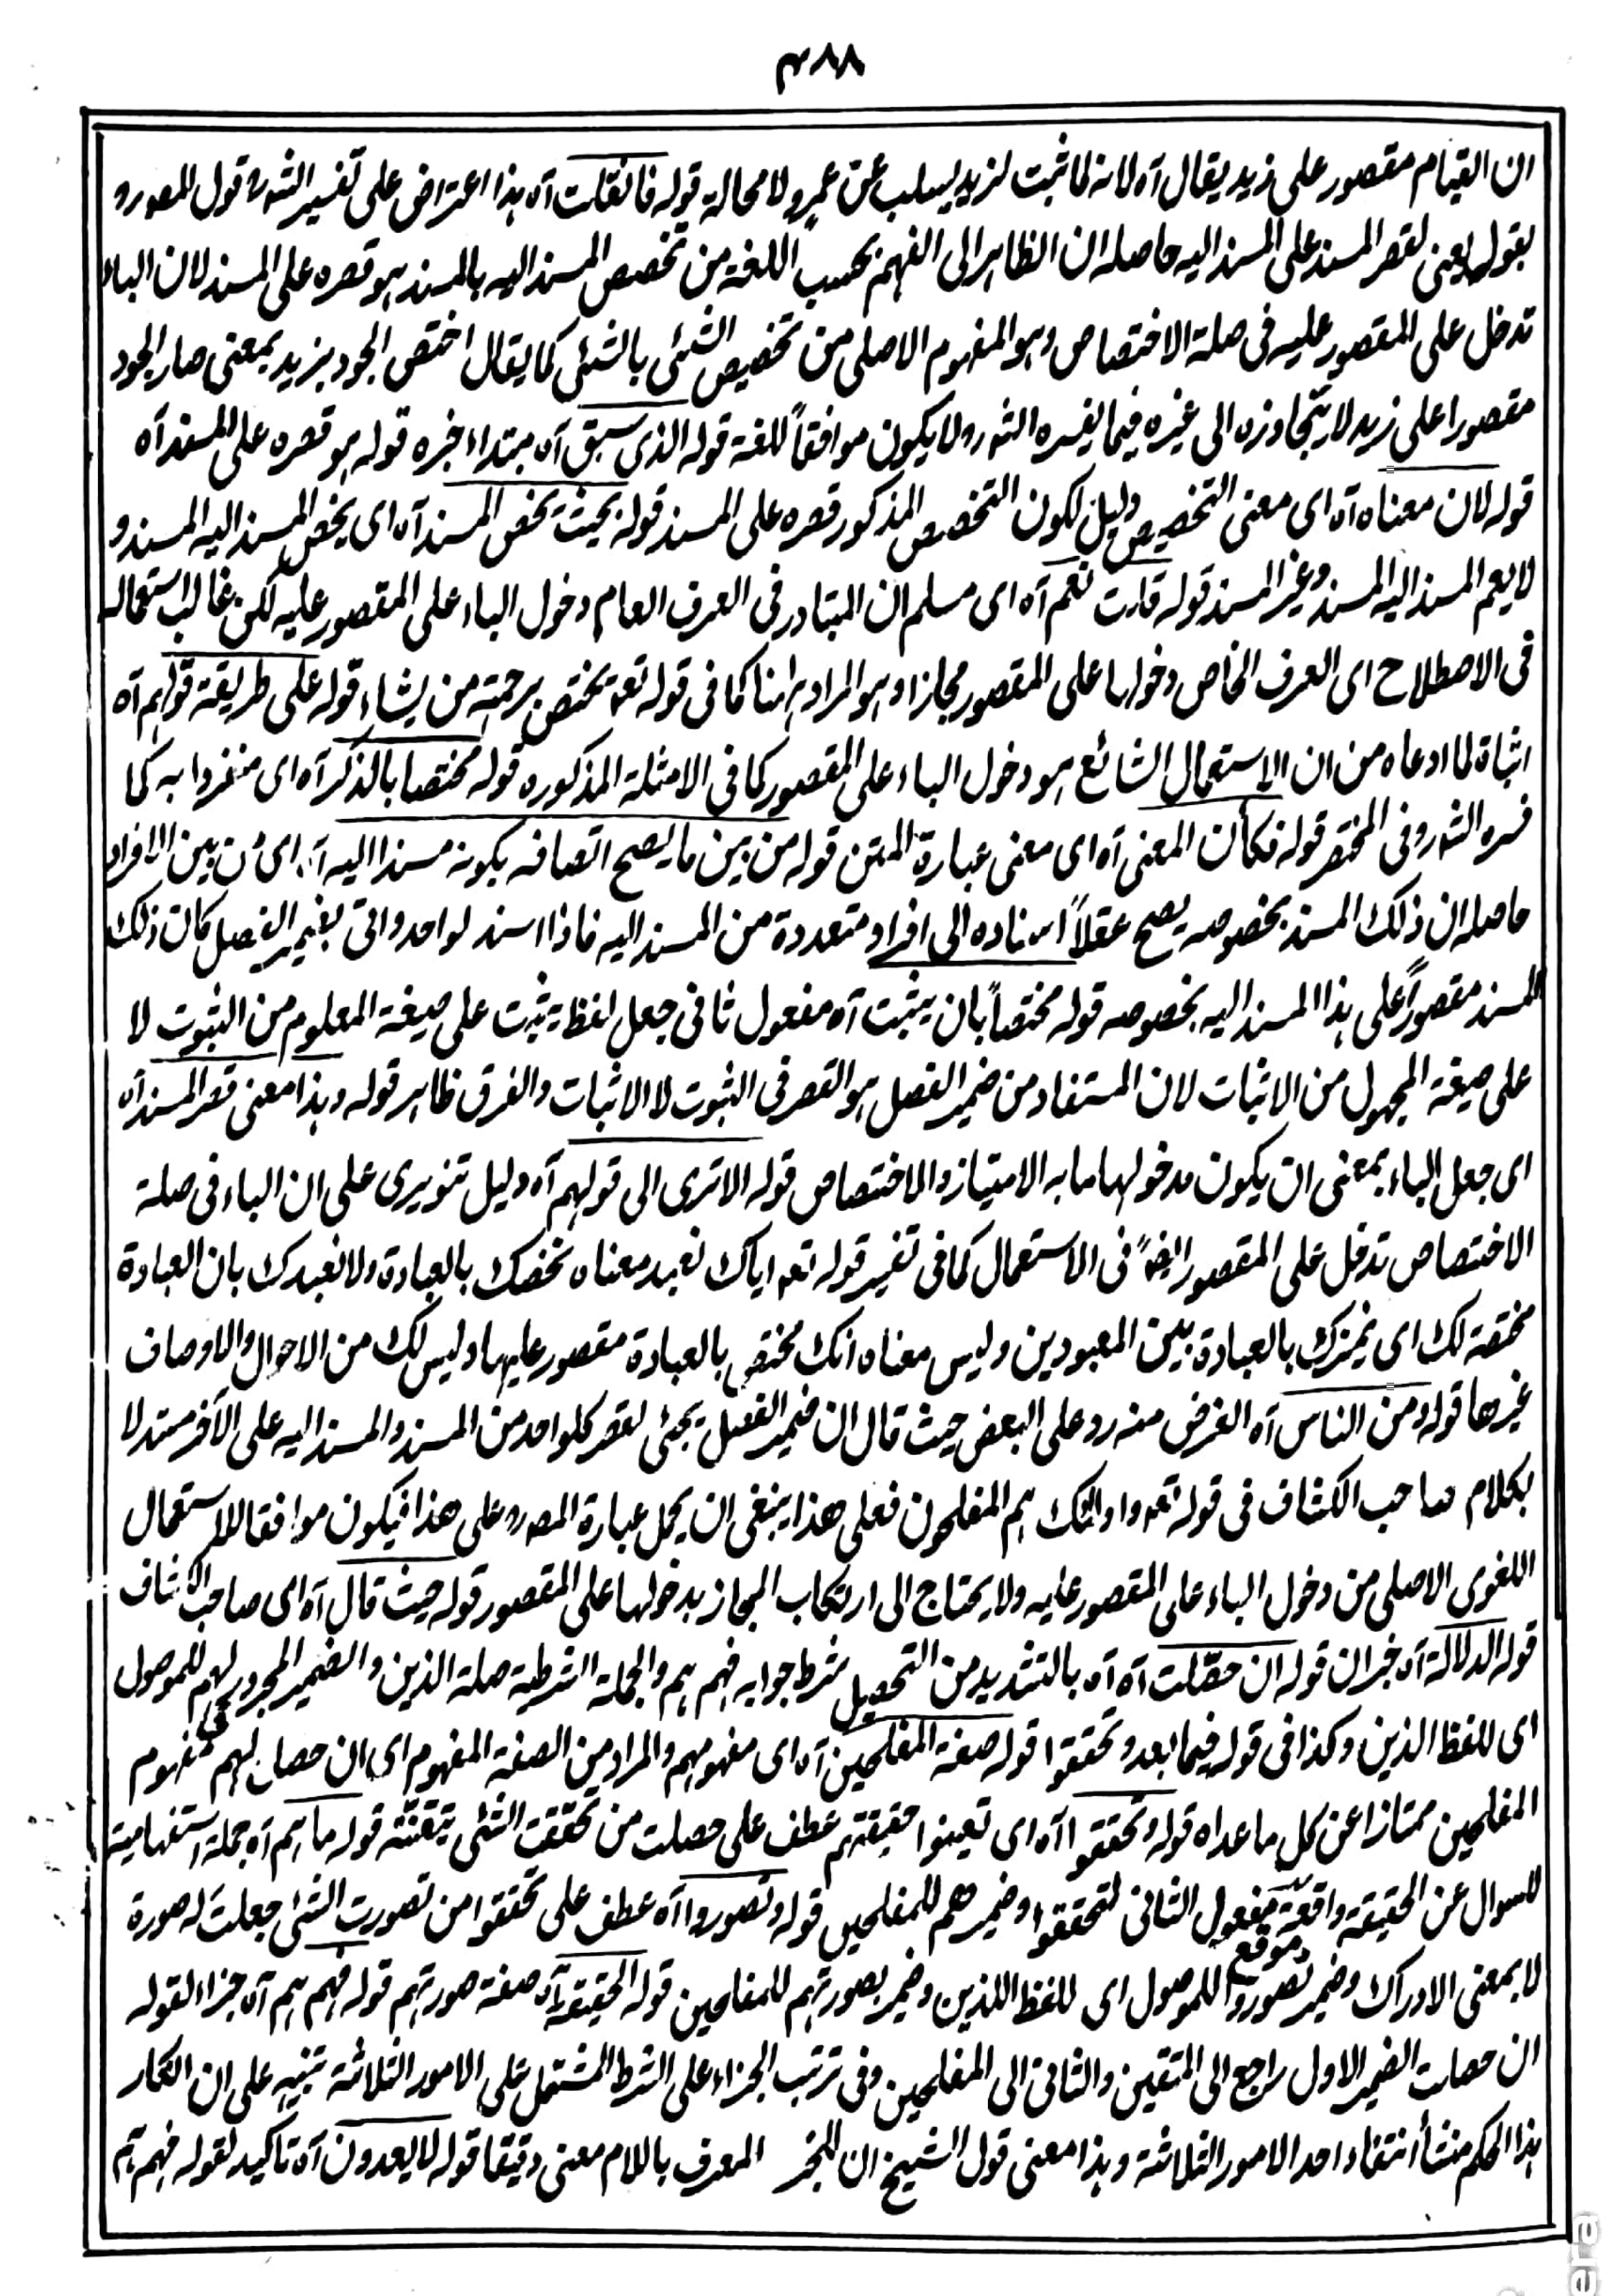 ۴۸۸
ان القيام مقصور على زيد يقال آه لانه لما ثبت لزيد يسلب عن عمرو لا محالة قوله فانقلت آه هذا اعتراض على تفسير الشهرة قول المصررو
بقوله يعنى لقصر المسند على المسند اليه حاصله ان الظاهر الى الفهم بحسب اللغة من تخصيص المسند اليه بالمسند هو قصره على المسند لان الباء
تدخل على المقصور عليه فى صلة الاختصاص وهو المفهوم الاصلى من تخصيص الشئى بالشئى كما يقال اختص الجود بزيد بمعنى صار الجود
مقصورا على زيد لا يتجاوزه الى غيره فيما يفسره الشهرو لا يكون موافقاً للغة قوله الذى سبق آه مبتداء خبره قوله هو قصره على المسند آه
قوله لان معناه آه اى معنى التخصيص دليل لكون التخصيص المذكور قصره على المسند قوله بحيث يخص المسند آه اى يخص المسند اليه المسند و
لا يعم المسند اليه المسند وغير المسند قوله قلت نعم آه اى مسلم ان المتبادر فى العرف العام دخول الباء على المقصور عليه لكن غالب استعماله
فى الاصطلاح اى العرف الخاص دخولها على المقصور مجازا وهو المراد ههنا كما فى قوله تعه يختص برحمته من يشاء قوله على طريقة قولهم آه
اثباة لما ادعاه من ان الاستعمال الشائع هو دخول الباء على المقصور كما فى الامثلة المذكوره قوله مختصا بالذكر آه اى منفردا به كما
فسره الشهرو فى المختصر قوله فكأن المعنى آه اى معنى عبارة المتن قوله من بين ما يصح اتصافه بكونه مسندا اليه آه اى من بين الافراد
حاصله ان ذلك المسند بخصوصه يصح عقلاً اسناده الى افراد متعددة من المسند اليه فاذا اسند لواحد واتى بضمير الفصل كان ذلك
المسند مقصوراً على هذا المسند اليه بخصوصه قوله مختصاً بان يثبت آه مفعول ثانى جعل لفظ يثبت على صيغة المعلوم من الثبوت لا
على صيغة المجهول من الاثبات لان المستفاد من ضمير الفصل هو القصر فى الثبوت لا الاثبات والفرق ظاهر قوله وهذا معنى قصر المسند آه
اى جعل الباء بمعنى ان يكون مدخولها ما به الامتياز والاختصاص قوله الا ترى الى قولهم آه دليل تنويرى على ان الباء فى صلة
الاختصاص تدخل على المقصور ايضاً فى الاستعمال كما فى تفسير قوله تعه اياك نعبد معناه نخصك بالعبادة ولا نعبدك بان العبادة
مختصة لك اى نميزك بالعبادة بين المعبودين وليس معناه انك مختص بالعبادة مقصور عليها وليس لك من الاحوال والاوصاف
غيرها قوله ومن الناس آه الغرض منه رد على البعض حيث قال ان ضمير الفصل يجئى لقصر كلواحد من المسند والمسند اليه على الآخر مستدلا
بكلام صاحب الكشاف فى قوله تعه واولئك هم المفلحون فعلى هذا ينبغى ان يحمل عبارة المصررو على هذا فيكون موافقا للاستعمال
اللغوى الاصلى من دخول الباء على المقصور عليه ولا يحتاج الى ارتكاب المجاز بدخولها على المقصور قوله حيث قال آه اى صاحب الكشاف
قوله الدلالة آه خبر ان قوله ان حصّلت آه آه بالتشديد من التحصيل شرط جوابه فهم هم والجملة الشرطية صلة الذين والضمير المجرور لهم للموصول
اى للفظ الذين وكذا فى قوله فيما بعد وتحققوا قوله صفة المفلحين آه اى مفهومهم والمراد من الصفة المفهوم اى ان حصل لهم مفهوم
المفلحين ممتازا عن كل ما عداه قوله وتحققوا آه اى تعينوا حقيقتهم عطف على حصلت من تحققت الشئى تيقنته قوله ما هم آه جملة استفهامية
للسوال عن الحقيقة واقعة موقع مفعول الثانى لتحققوا وضمير هم للمفلحين قوله وتصوروا آه عطف على تحققوا من تصورت الشئى جعلت له صورة
لا بمعنى الادراك وضمير تصوروا للموصول اى للفظ اللذين وضمير بصورتهم للمفلحين قوله الحقيقية آه صفة صورتهم قوله فهم هم آه جزاء لقوله
ان حصلت الضمير الاول راجع الى المتقين والثانى الى المفلحين وفى ترتب الجزاء على الشرط المشتمل على الامور الثلاثة تنبيه على ان انكار
هذا الحكم منشأ انتفاء احد الامور الثلاثة وهذا معنى قول الشيخ ان للخبر المعرف باللام معنى دقيقا قوله لا يعدون آه تاكيد لقوله فهم هم
era